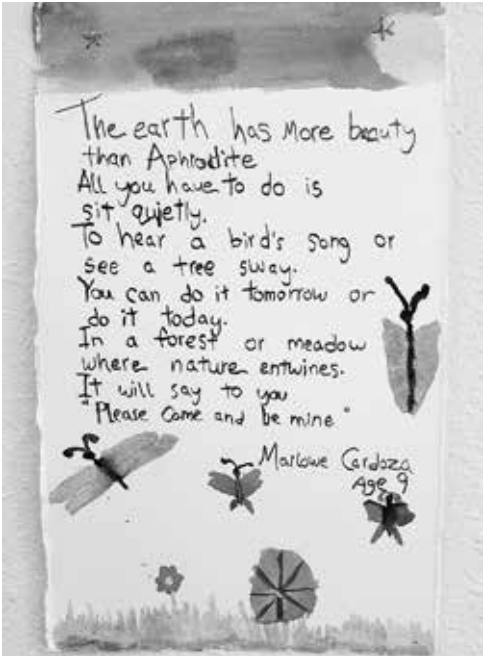 The earth has more beauty
than Aphrodite
All you have to do is
sit quietly.
To hear a bird's song or
see a tree sway.
You can do it tomorrow or
do it today.
In a forest or meadow
where nature entwines.
It will say to you
"Please Come and be mine"
Marlowe Cardoza
Age 9